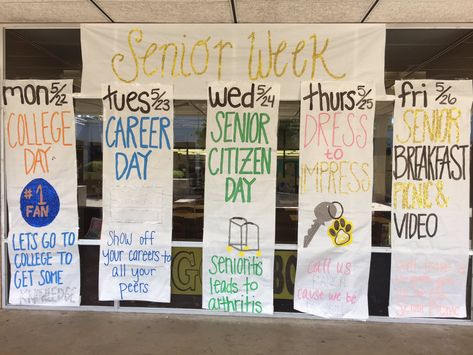 Senior Week
mon 5/22
COLLEGE
DAY
#1
FAN
LETS GO TO
COLLEGE TO
GET SOME
KNOWLEDGE
tues 5/23
CAREER
DAY
Show off
your careers to
all your
peers
wed 5/24
SENIOR
CITIZEN
DAY
Senioritis
leads to
arthritis
thurs 5/25
DRESS
to
IMPRESS
Call us
cause we be
fri 5/26
SENIOR
BREAKFAST
PICNIC &
VIDEO